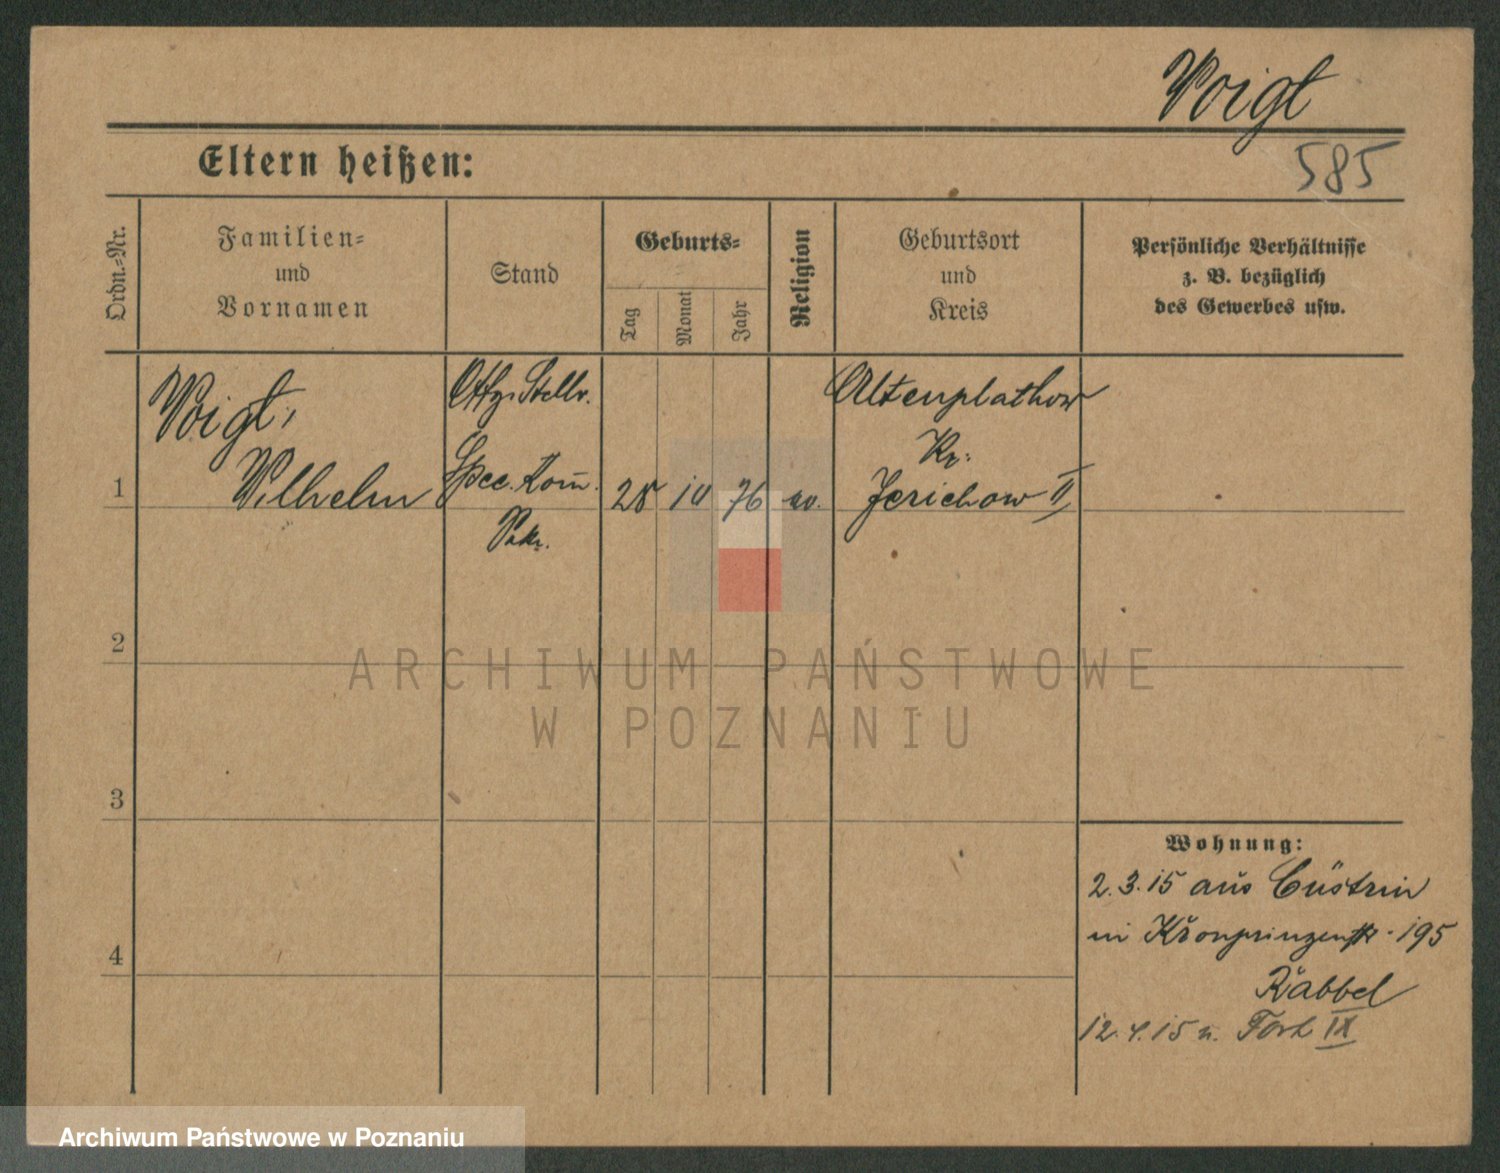 Voigt
Eltern heißen:
585
Ordn.-Nr.
Familien-
und
Vornamen
Stand
Geburts-
Tag
Monat
Jahr
Religion
Geburtsort
und
Kreis
Persönliche Verhältnisse
z. B. bezüglich
des Gewerbes usw.
1
Voigt,
Wilhelm
Offz. Stellv.
Spec. Kom.
28 10 76 ev.
Altenplathow
Kr.
Jerichow II
2
3
4
Wohnung:
2.3.15 aus Cüstrin
in Kronprinzenstr. 195
Rabbel
12.4.15 n. Fort IX
ARCHIWUM PAŃSTWOWE
W POZNANIU
Archiwum Państwowe w Poznaniu